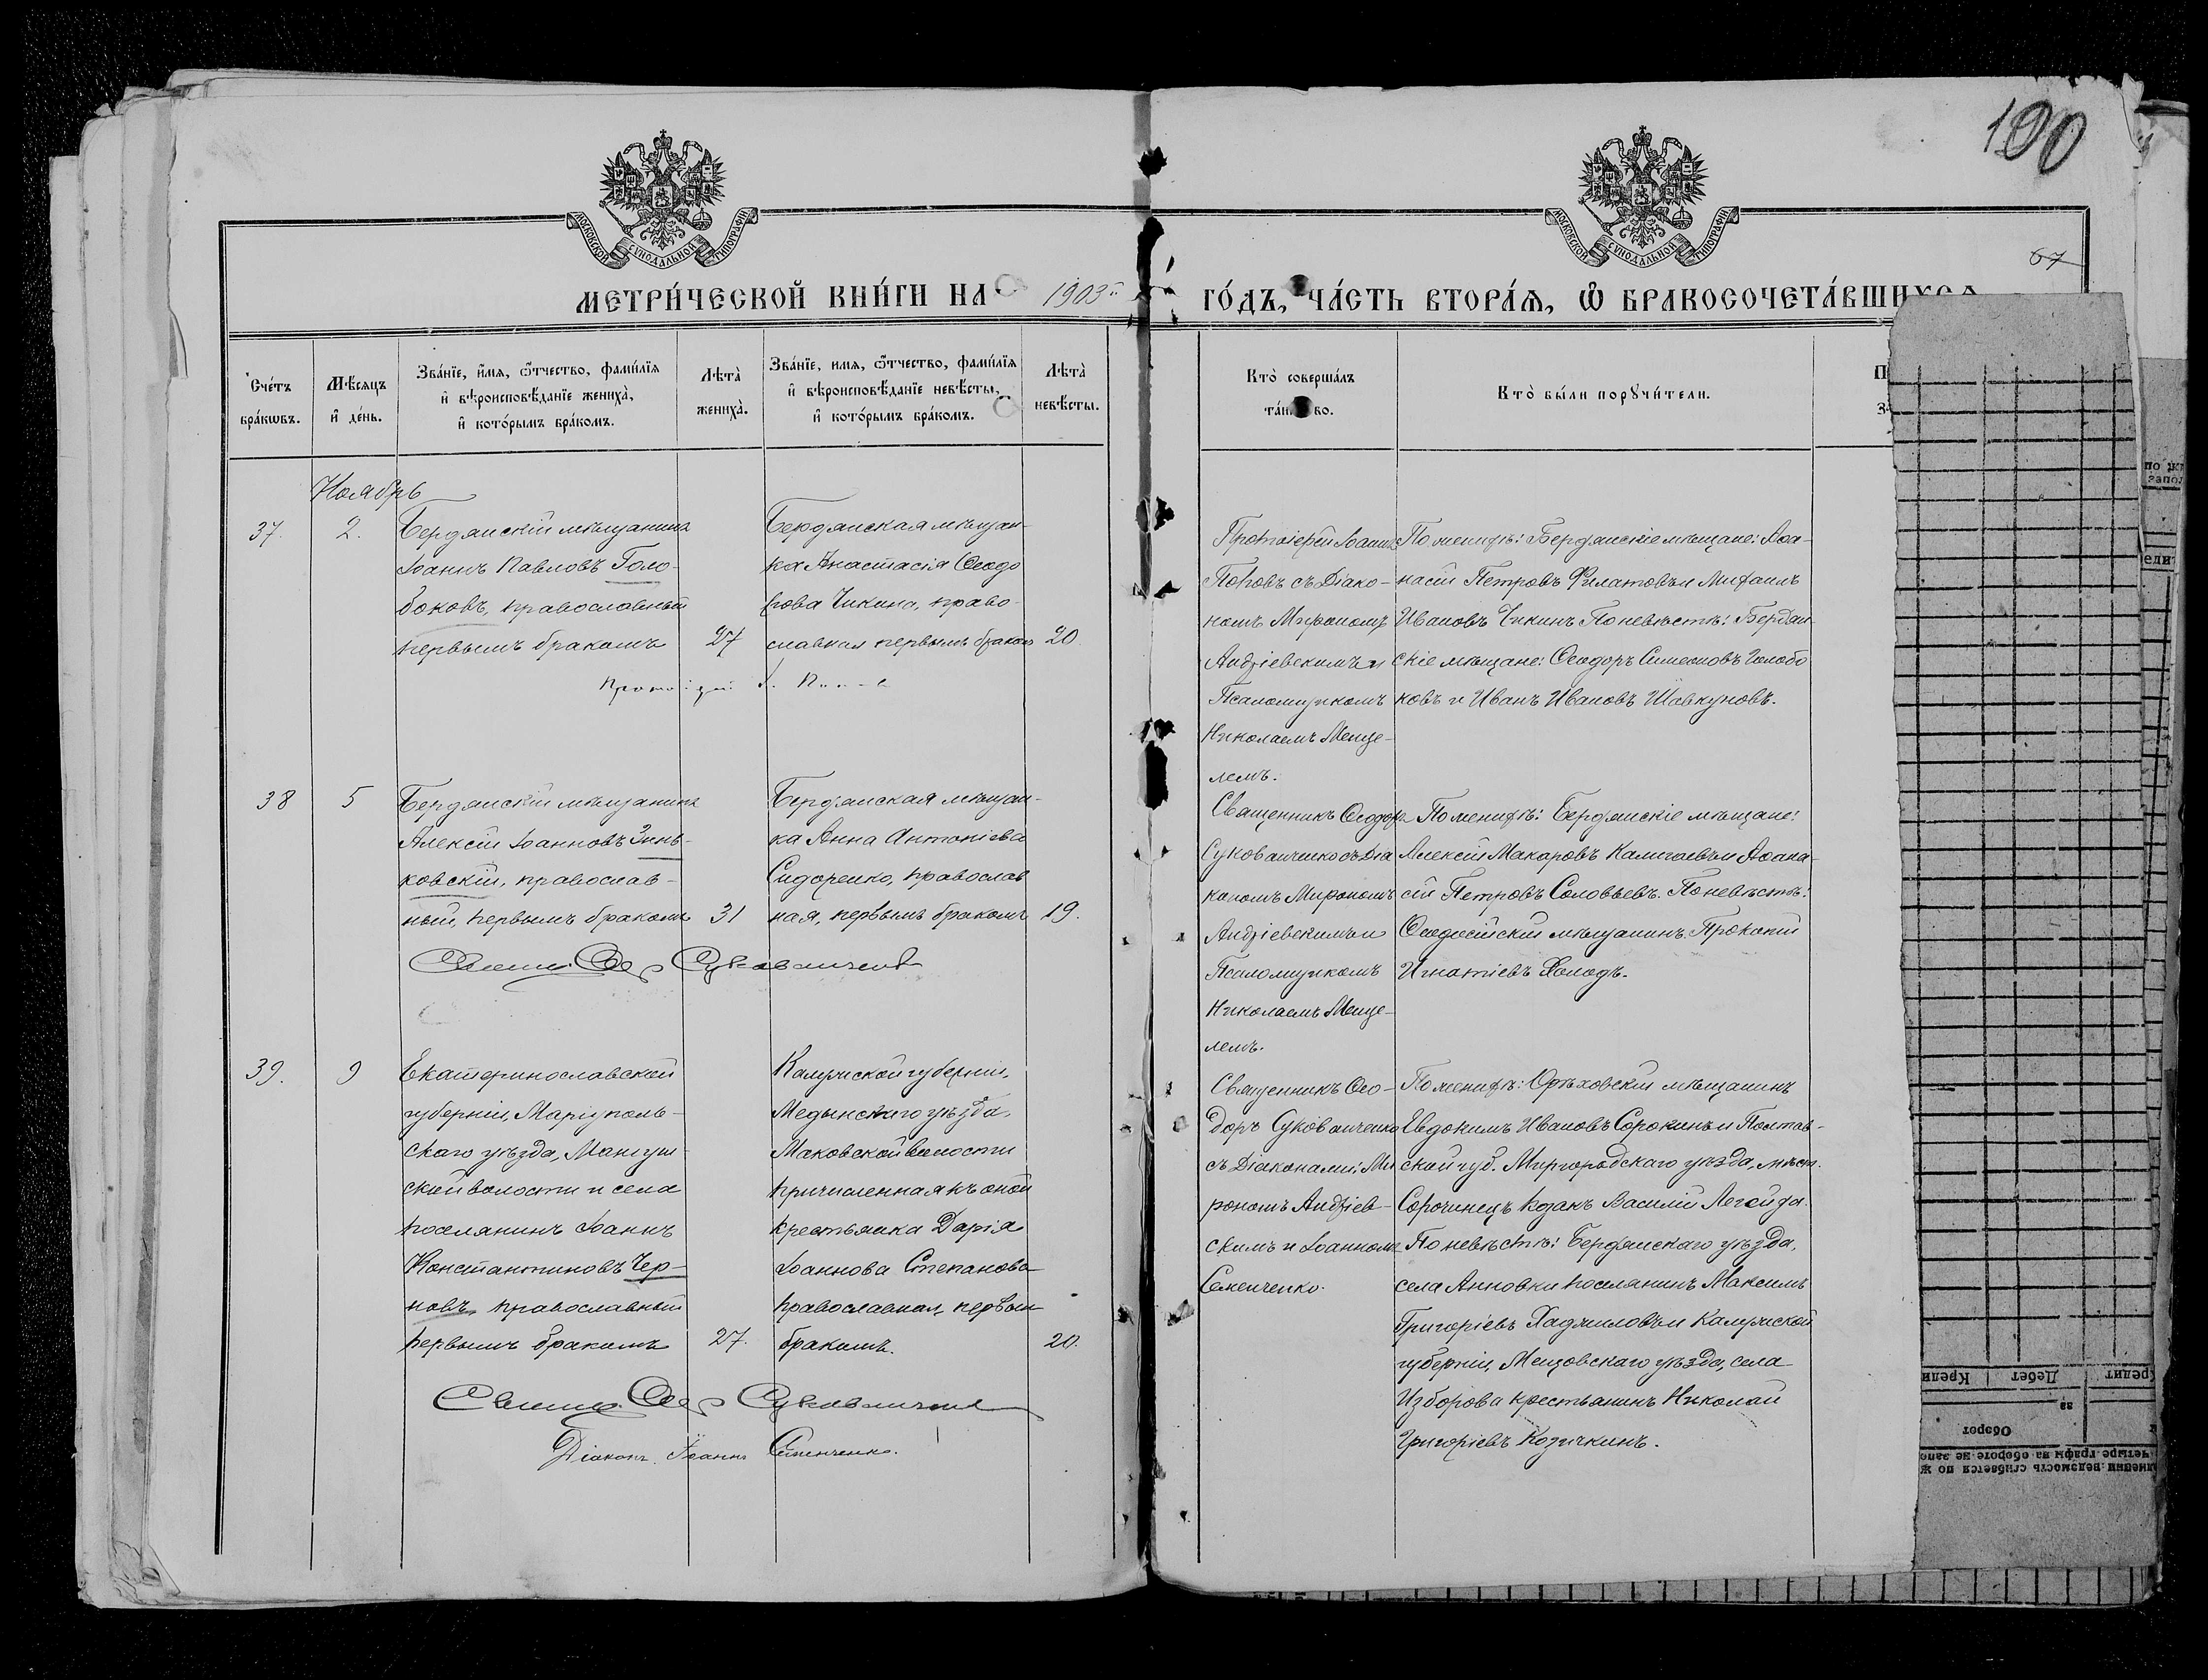 190
67
МОСКОВСКОЙ СѴНОДАЛЬНОЙ ТИПОГРАФІИ
МОСКОВСКОЙ СѴНОДАЛЬНОЙ ТИПОГРАФІИ
МЕТРИ́ЧЕСКОЙ КНИ́ГИ НА 1903й ГО́ДЪ, ЧА́СТЬ ВТОРА́Ѧ, Ѽ БРАКОСОЧЕТА́ВШИХСѦ
Сче́тъ
бра́кѡвъ.
Мѣ́сяцъ
и҆ де́нь.
Зва́нїе, и҆́мѧ, ѻ҆́тчество, фами́лїѧ
и҆ вѣроисповѣ́данїе жениха̀,
и҆ кото́рымъ бра́комъ.
Лѣта̀
жениха̀.
Зва́нїе, имѧ, ѻ҆́тчество, фами́лїѧ
и҆ вѣроисповѣ́данїе невѣ́сты,
и҆ кото́рымъ бра́комъ.
Лѣта̀
невѣ́сты.
Кто̀ соверша́лъ
Кто̀ бы́ли порꙋчи́тели.
Ноябрь
37.
2.
Бердянскій мѣщанинъ
Іоаннъ Павловъ Голо-
боковъ, православный
первымъ бракомъ
27
Бердянская мѣщан-
ка Анастасія Ѳеодо
рова Чикина, право-
славная первымъ браком
20
Протоіерей І.
Протоіерей Іоаннъ
Поповъ съ Діако-
номъ Мирономъ
Андріевскимъ и
Псаломщикомъ
Николаемъ Менце-
лемъ.
По женихѣ: Бердянскіе мѣщане: Аѳа-
насій Петровъ Филатовъ и Михаилъ
Ивановъ Чикинъ По невѣстѣ: Бердян
скіе мѣщане: Ѳеодоръ Симеоновъ Голобо
ковъ и Иванъ Ивановъ Шавкуновъ.
38
5
Бердянскій мѣщанинъ
Алексій Іоанновъ Зинь-
ковскій, православ-
ный, первымъ бракомъ
31
Бердянская мѣщан-
ка Анна Антоніева
Сидоренко, православ
ная, первымъ бракомъ
19.
Свящ. Ѳеод. Сукованченко
Священникъ Ѳеодоръ
Сукованченко съ Діа
кономъ Мирономъ
Андріевскимъ и
Псаломщикомъ
Николаемъ Менце-
лемъ.
По женихѣ: Бердянскіе мѣщане:
Алексій Макаровъ Калигаевъ и Аѳана-
сій Петровъ Соловьевъ. По невѣстѣ:
Ѳеодосійскій мѣщанинъ Прокопій
Игнатіевъ Холодъ.
39.
9
Екатеринославской
губерніи, Маріуполь-
скаго уѣзда, Мангуш-
ской волости и села
поселянинъ Іоаннъ
Константиновъ Чер-
новъ, православный
первымъ бракомъ
27.
Калужской губерніи,
Медынскаго уѣзда,
Маковской волости
причисленная къ оной
крестьянка Дарія
Іоаннова Степанова
православная, первым
бракомъ.
20.
Свящ. Ѳеод. Сукованченко
Діаконъ Іоаннъ Семенченко.
Священникъ Ѳео-
доръ Сукованченко
съ Діаконами: Ми
рономъ Андріев-
скимъ и Іоанномъ
Семенченко.
По женихѣ: Орѣховскій мѣщанинъ
Евдокимъ Ивановъ Сорокинъ и Полтав-
ской губ. Миргородскаго уѣзда, мѣст.
Сорочинецъ козакъ Василій Легейда.
По невѣстѣ: Бердянскаго уѣзда,
села Анновки поселянинъ Максимъ
Григоріевъ Хаджиловъ и Калужской
губерніи, Мещовскаго уѣзда, села
Изборова крестьянинъ Николай
Григоріевъ Козичкинъ.
Дебет
Оборот